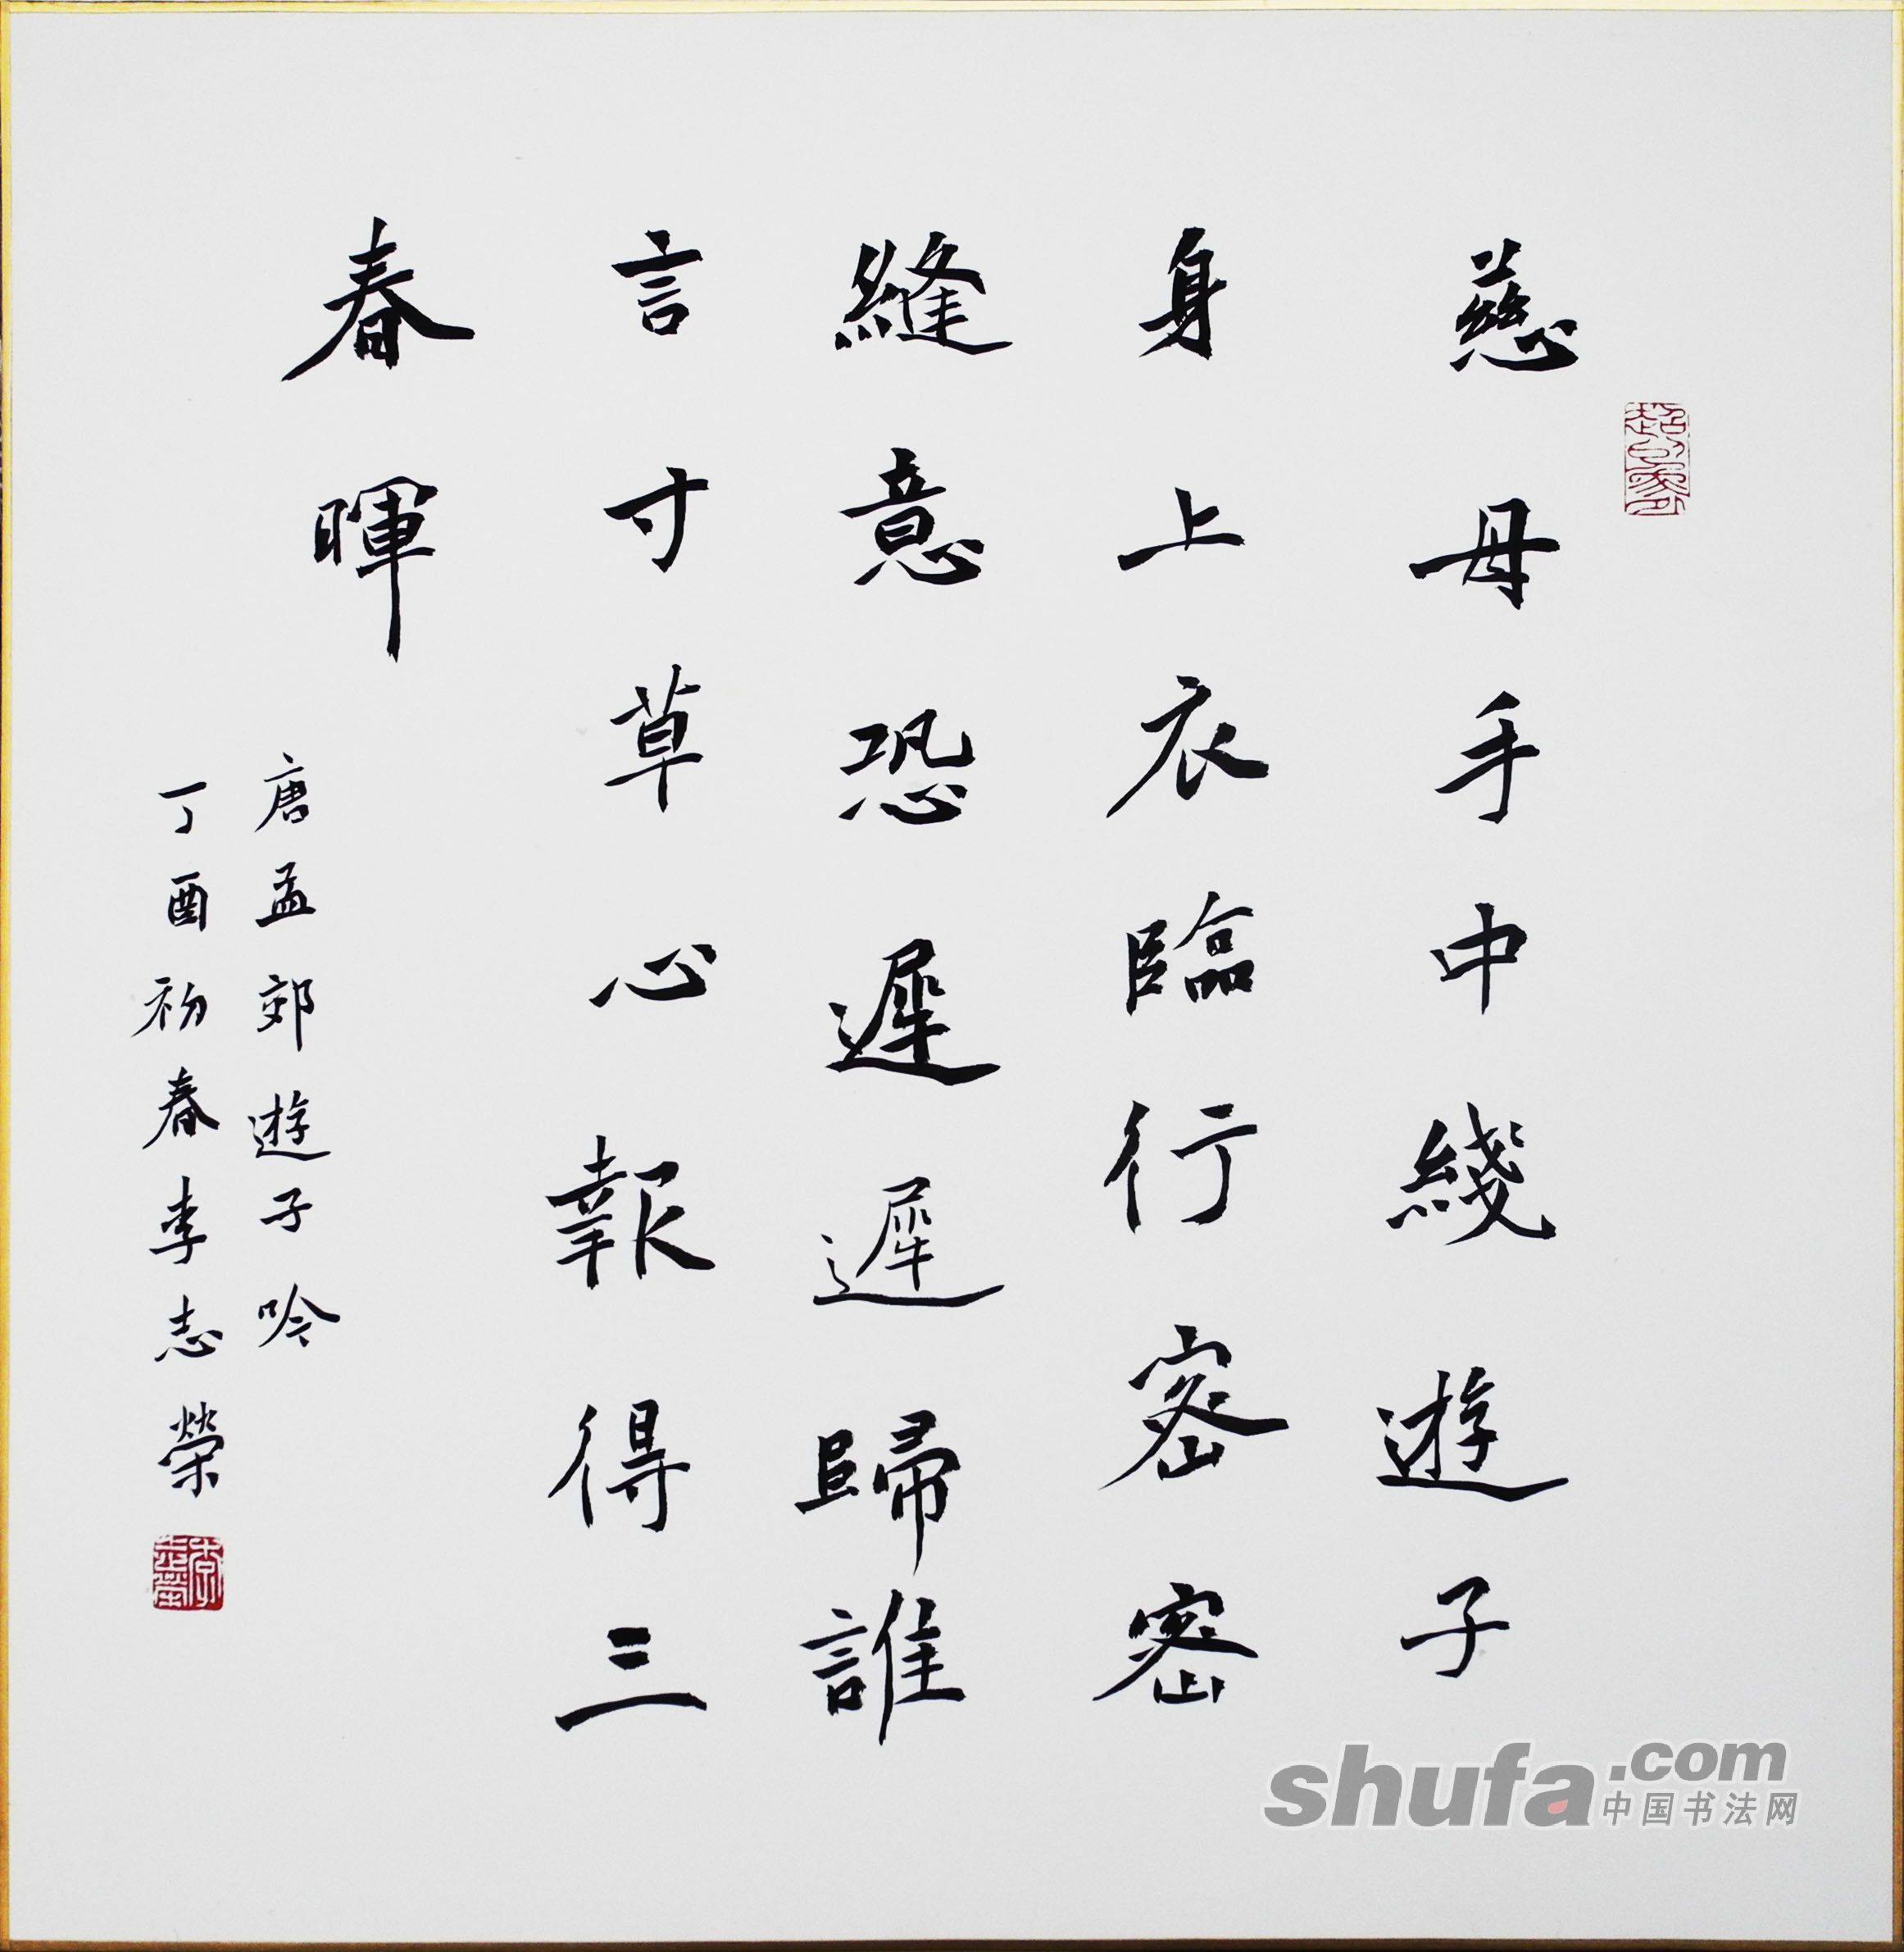 超以象外
慈母手中綫遊子
身上衣臨行密密
縫意恐遲遲歸誰
言寸草心報得三
春暉
唐孟郊遊子吟
丁酉初春李志榮
李志榮
shufa.com
中国书法网